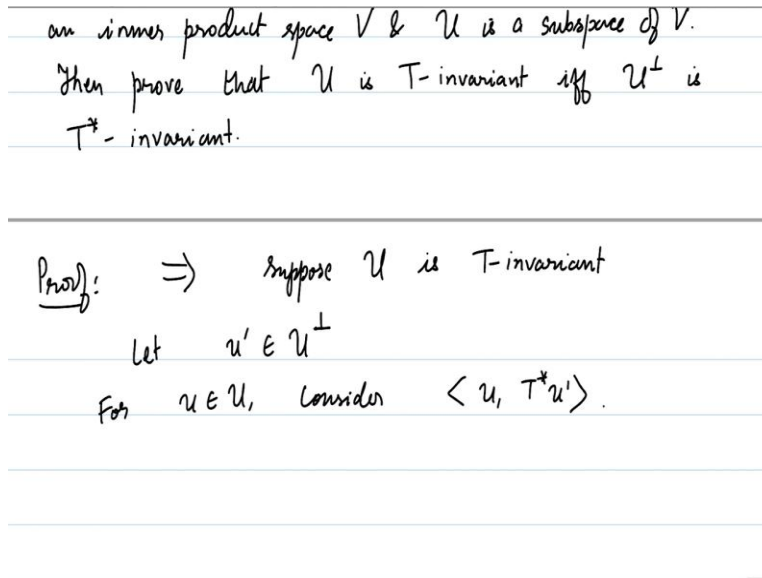 an inner product space V & U is a subspace of V.
Then prove that U is T-invariant iff U⊥ is
T*- invariant.
Proof: ⇒ suppose U is T-invariant
Let u' ∈ U⊥
For u ∈ U, Consider < u, T*u'>.